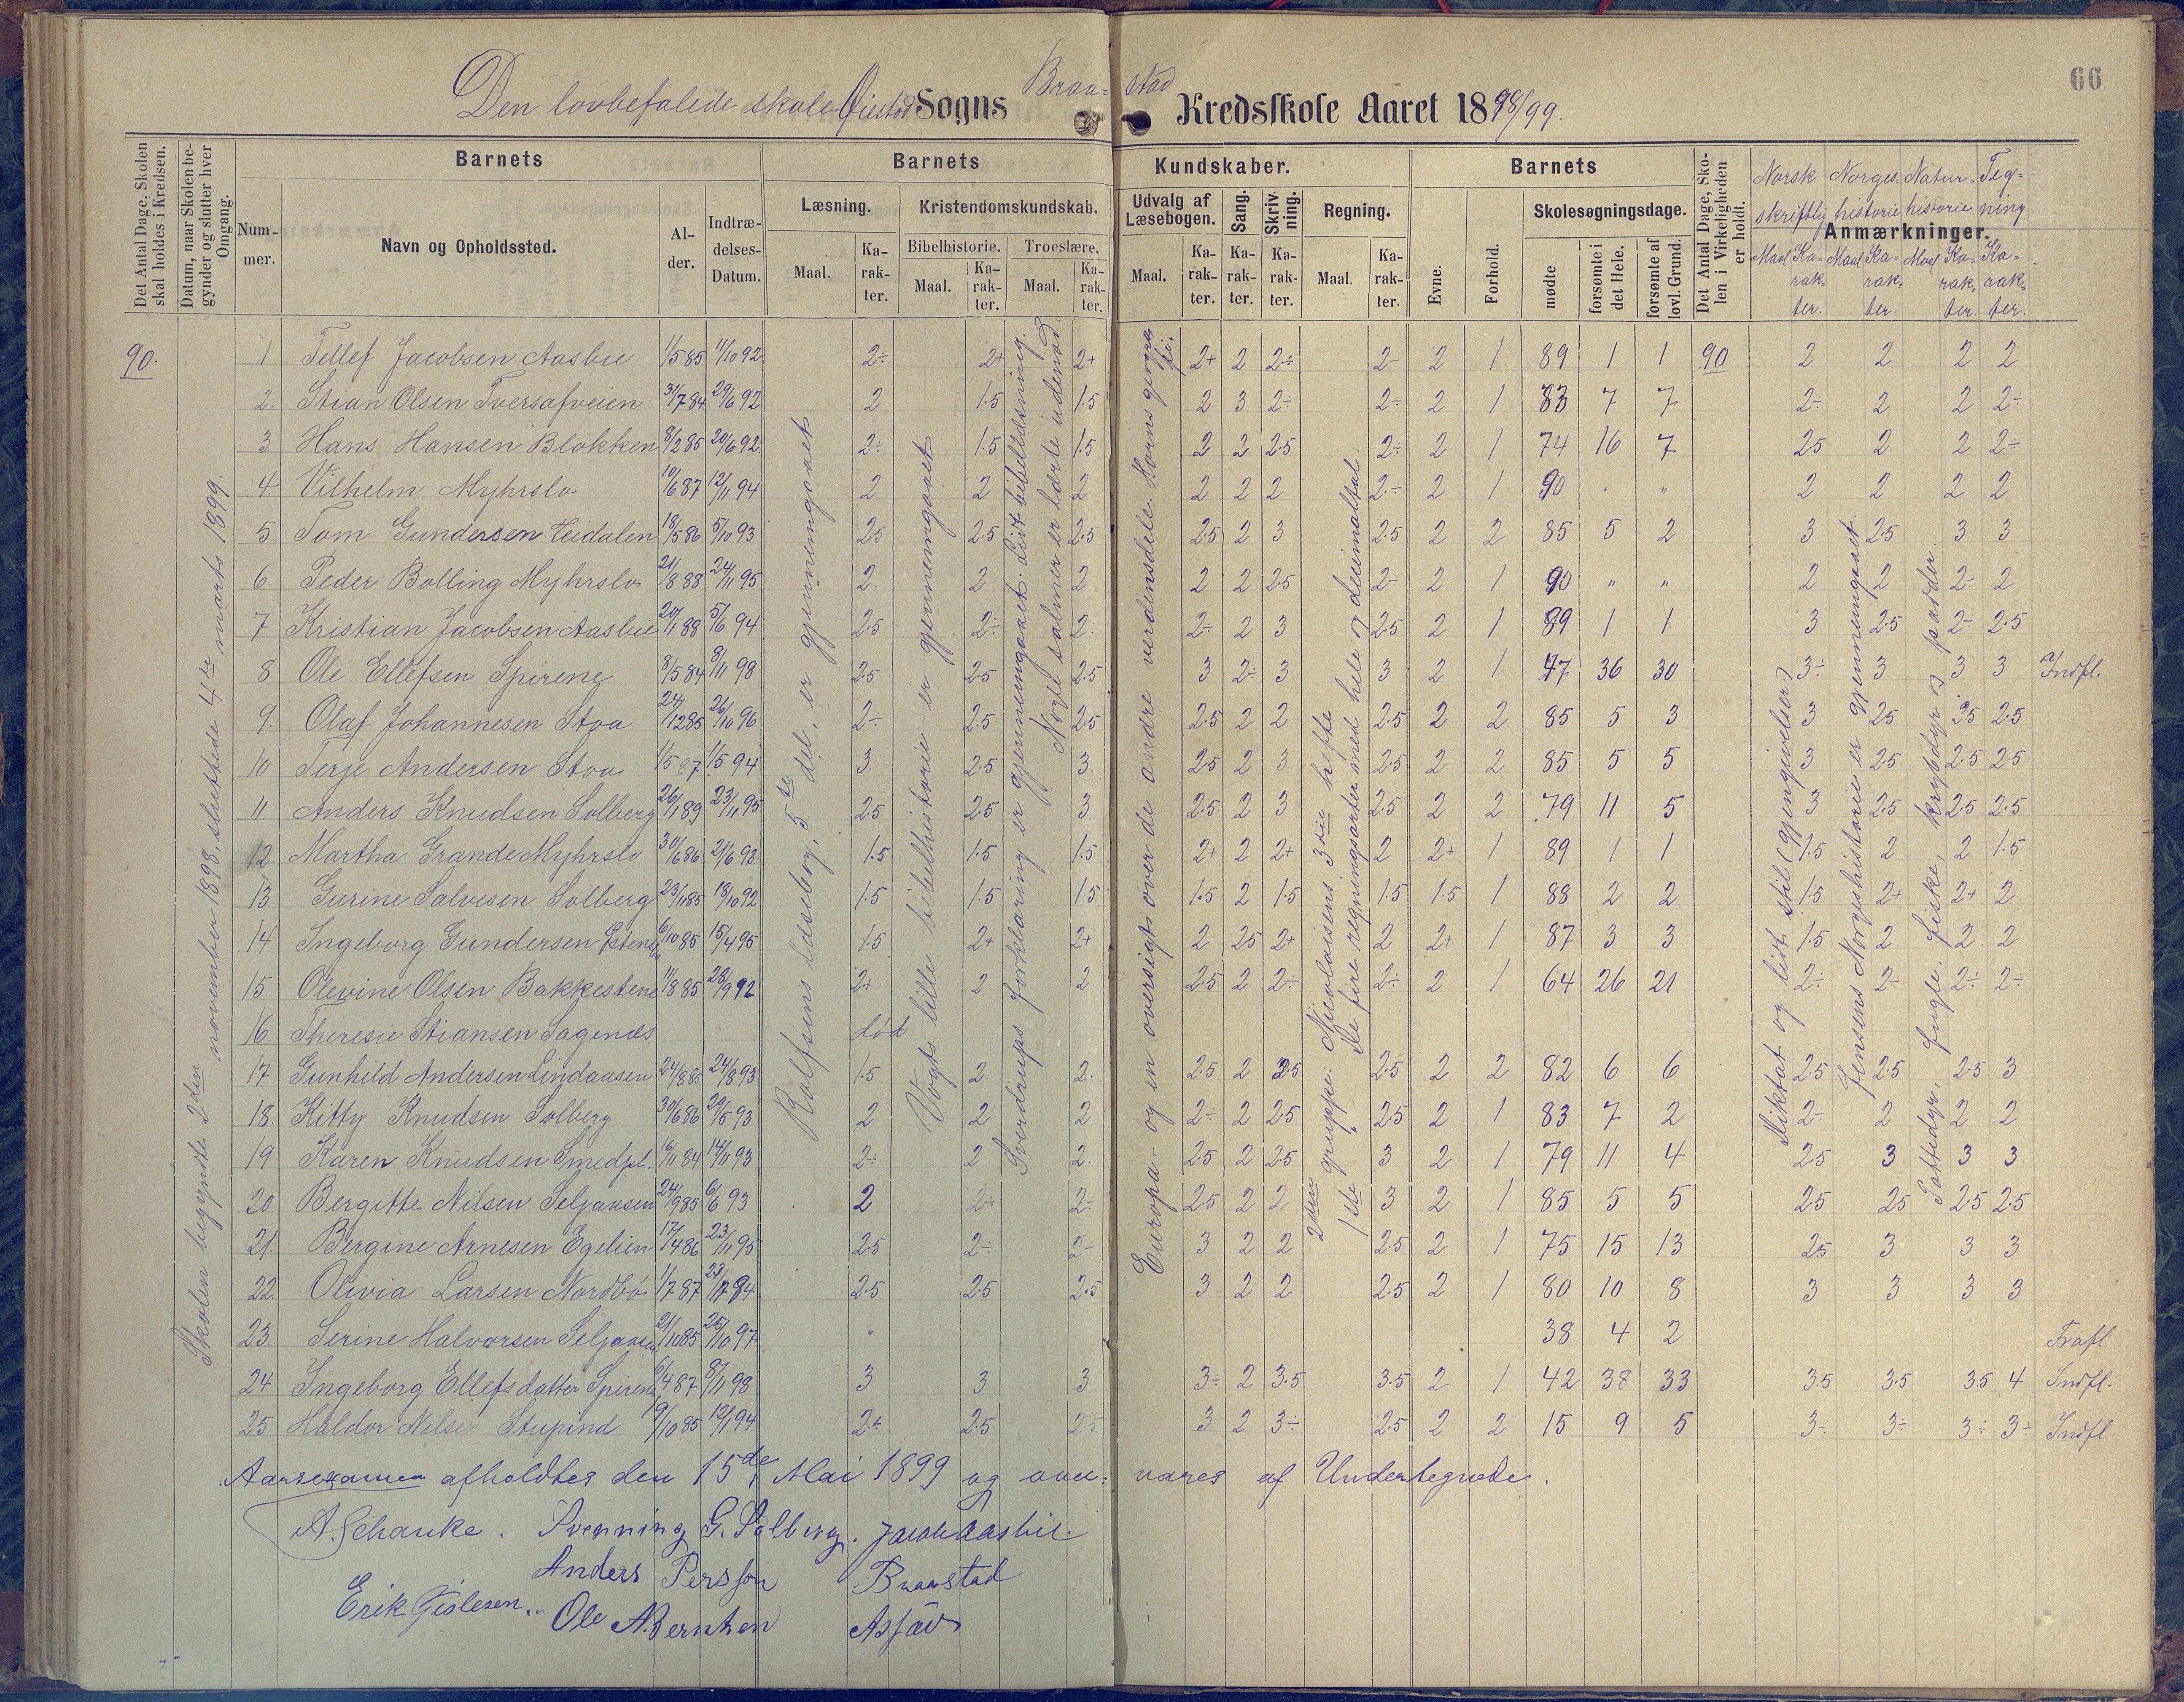 66
Den lovbefalede skole Øiestad Sogns Braa- stad Kredsskole Aaret 1898/99.
Det Antal Dage, Skolen skal holdes i Kredsen.
Datum, naar Skolen begynder og slutter hver Omgang.
Barnets
Barnets
Kundskaber.
Barnets
Det Antal Dage, Skolen i Virkeligheden er holdt.
Norsk skriftlig
Norges- historie
Natur- historie
Teg- ning
Anmærkninger.
Num- mer.
Navn og Opholdssted.
Al- der.
Indtræ- delses- Datum.
Læsning.
Kristendomskundskab.
Bibelhistorie.
Troeslære.
Udvalg af Læsebogen.
Sang.
Skriv ning.
Regning.
Evne.
Forhold.
Skolesøgningsdage.
mødte
forsømte i det Hele.
forsømte af lovl. Grund.
Maal. Ka- rak- ter. Maal. Ka- rak- ter. Maal. Ka- rak- ter. Maal. Ka- rak- ter. Ka- rak- ter. Ka- rak- ter. Maal. Ka- rak- ter.
Maal Ka- rak- ter. Maal Ka- rak- ter. Maal Ka- rak- ter. Ka- rak- ter.
90. 1 Tellef Jacobsen Aasbie 1/5 85 11/10 92 2÷ 2+ 2+ 2+ 2 2÷ 2- 2 1 89 1 1 90. 2 2 2 2
2. Stian Olsen Tversafveien 31/7 84 29/6 92 2 1.5 1.5 2 3 2÷ 2÷ 2 1 83 7 7 2÷ 2 2 2÷
3 Hans Hansen Blokken 8/2 85 20/6 92 2÷ 1.5 1.5 2 2 2.5 2÷ 2 1 74 16 7 2.5 2. 2 2÷
4. Vilhelm Myhrslo 10/6 87 12/11 94 2 2 2 2 2 2 2÷ 2 1 90 . " 2 2 2 2
5. Tom Gundersen Heidalen 18/5 86 5/10 93 2.5 2.5 2.5 2.5 2 3 2.5 2 2 85 5 2 3 2.5 3 3
6 Peder Bolling Myhrslo 21/8 88 24/11 95 2. 2 2 2 2 2.5 2÷ 2 1 90 " " 2 2 2- 2
7 Kristian Jacobsen Aasbie 20/1 88 5/6 94 2.5 2÷ 2. 2÷ 2 3 2.5 2 1 89 1 1 3 2.5 2÷ 2.5
8. Ole Ellefsen Spirene 8/5 84 8/11 98 2.5 2.5 2.5 3 2÷ 3 3 2 1 47 36 30 3÷ 3 3 3 Indfl.
9. Olaf Johannesen Stoa 24/12 85 26/10 96 2÷ 2.5 2.5 2.5 2 2 2.5 2 2 85 5 3 3 2.5 2.5 2.5
10 Terje Andersen Stoa 1/5 87 1/5 94 3. 2.5 3. 2.5 2 3 2.5 2 2 85 5 5 3 2.5 2.5 2.5
11 Anders Knudsen Solberg 26/1 89 23/11 95 2.5 2.5 3 2.5 2 3 2.5 2 2 79 11 5 3 2.5 2.5 2.5
12. Martha Grande Myhrslo 30/6 86 2/6 92 1.5 1.5 1.5 2+ 2 2+ 2 2+ 1 89 1 1 1.5 2 2 1.5
13 Gurine Salvesen Solberg 23/11 85 18/10 92 1.5 1.5 1.5 1.5 2 1.5 1.5 1.5 1 88 2 2 1.5 2+ 2+ 2
14. Ingeborg Gundersen 6/10 85 15/4 95 1.5 2+ 2+ 2 2.5 2+ 2 2+ 1 87 3 3 1.5 2 2. 2
15. Olevine Olsen Bakkestene 11/8 85 28/9 92 2+ 2 2 2.5 2 2÷ 2÷ 2 1 64 26 21 2÷ 2- 2÷ 2÷
16. Theresie Stiansen Sagenæs død
17 Gunhild Andersen Lindaasen 24/8 85 24/8 93 1.5 2. 2. 2.5 2 2.5 2.5 2 2 82 6 6 2.5 2.5 2.5 3
18. Kitty Knudsen Solberg 30/6 86 29/5 93 2 2 2 2÷ 2 2.5 2.5 2 1 83 7 2 2÷ 2 2 2
19 Karen Knudsen Smedpl. 16/11 84 14/11 93 2÷ 2 2. 2.5 2 2.5 3 2 1 79 11 4 2.5 3 3 3
20 Bergitte Nilsen Seljaasen 24/9 85 6/6 93 2 2÷ 2÷ 2.5 2 2 3 2 1 85 5 5 2.5 2.5 2.5 2.5
21. Bergine Arnesen Egelien 17/4 86 23/11 95 2.5 2÷ 2÷ 3 2 2 2.5 2 1 75 15 13 2.5 3 3 3
22. Olivia Larsen Nordbö 1/7 87 94 2.5 2.5 2.5 3 2 2 2.5 2 1 80 10 8 3 3 3 3
23. Serine Halvorsen Seljaasen 2/10 85 25/10 97 " 38 4 2 Frafl.
24. Ingeborg Ellefsdatter Spirene 6/4 87 8/11 98 3 3 3 3÷ 2 3.5 3.5 2 1 42 38 33 3.5 3.5 3.5 4 Indfl.
25 Haldor Nilsen Stupind 19/10 85 12/1 94 2+ 2.5 2.5 3 2 3÷ 2.5 2 2 15 9 5 3÷ 3÷ 3÷ 3÷ Indfl
Skolen begyndte 2den november 1898, sluttede 4de marts 1899.
Rolfsens læsebog, 5te del, er gjennemgaaet
Vogts lille bibelhistorie er gjennemgaaet
Sverdrups forklaring er gjennemgaaet. Lidt bibellæsning.
Nogle salmer er lærte udenad.
Europa- og en oversigt over de andre verdensdele. Horns geografi.
2den gruppe: Nicolaisens 3die hefte
1ste " De fire regningsarter med hele og decimaltal.
Diktat og lidt stil (gjengivelser)
Jensens Norgeshistorie er gjennemgaaet
Pattedyr, fugle, fiske, krybdyr og padder.
Aarsexamen afholdtes den 15de Mai 1899 og over- vares af Undertegnede.
A. Schanke. Svenning G. Solberg. Jacob Aasbie.
Anders Persson Braastad
Erik Gislesen. Ole A. Berntsen